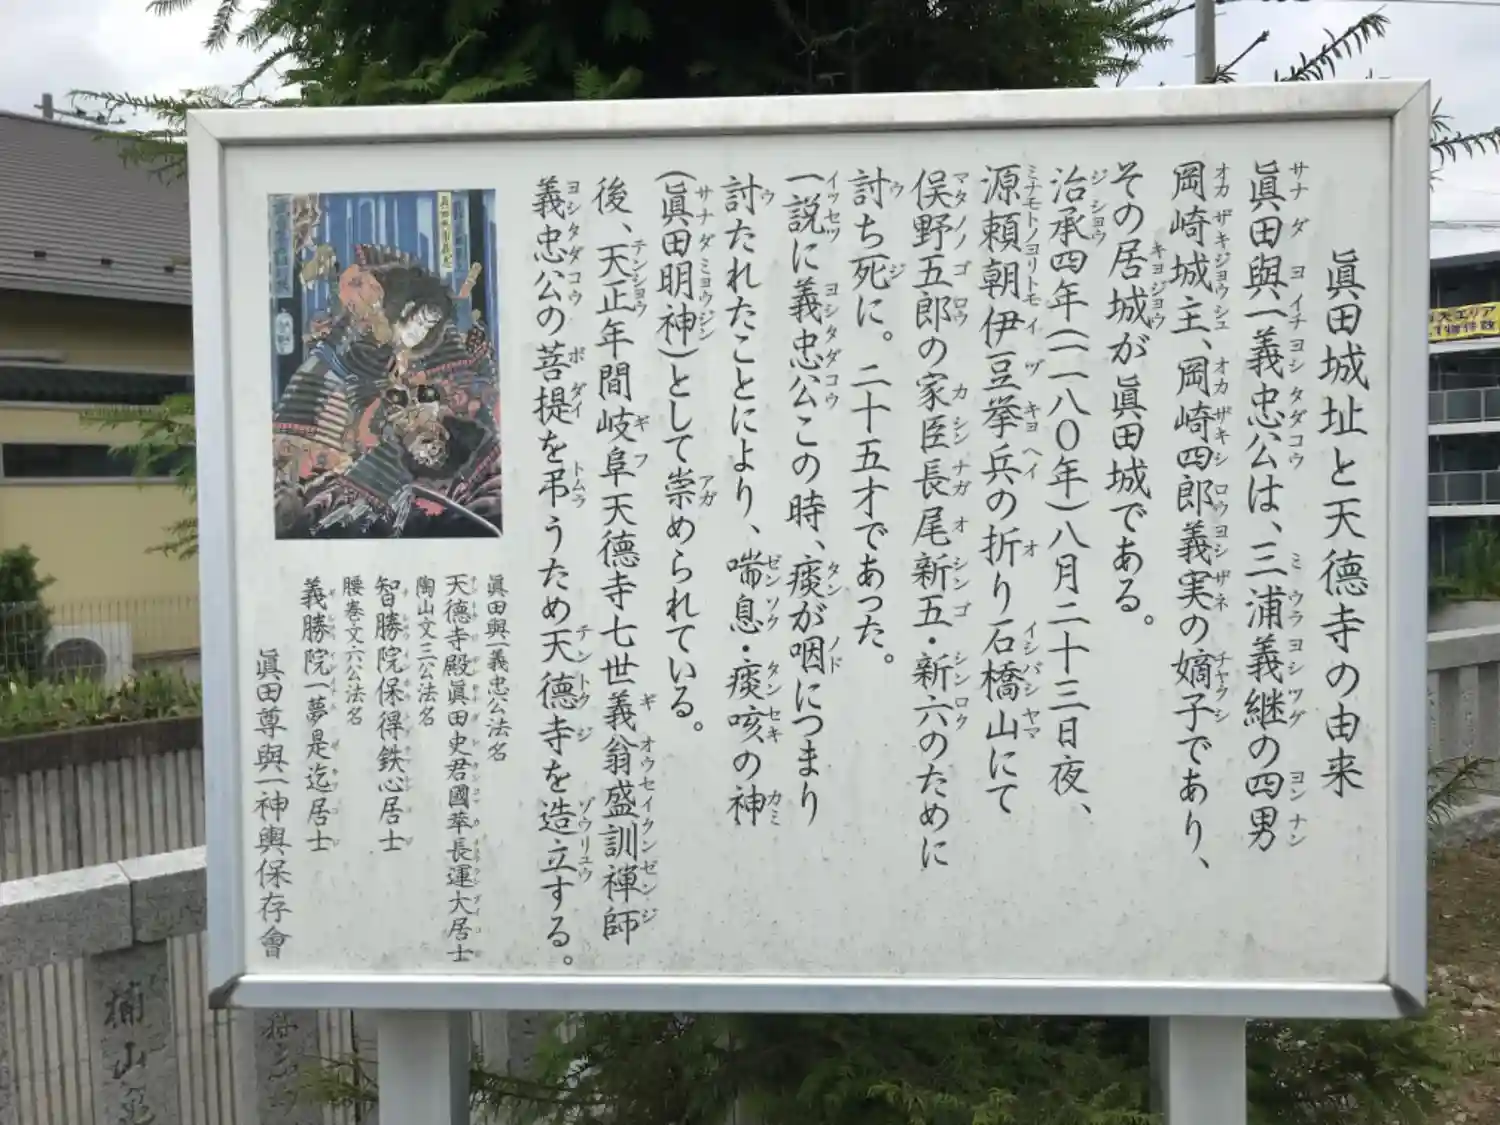 眞田城址と天德寺の由来
眞田與一義忠公は、三浦義継の四男
岡崎城主、岡崎四郎義実の嫡子であり、
その居城が眞田城である。
治承四年(一一八〇年)八月二十三日夜、
源頼朝伊豆挙兵の折り石橋山にて
俣野五郎の家臣長尾新五・新六のために
討ち死に。二十五才であった。
一説に義忠公この時、痰が咽につまり
討たれたことにより、喘息・痰咳の神
(眞田明神)として崇められている。
後、天正年間岐阜天德寺七世義翁盛訓禅師
義忠公の菩提を弔うため天德寺を造立する。
眞田與一義忠公法名
天德寺殿眞田史君國華長運大居士
陶山文三公法名
智勝院保得鉄心居士
腰巻文六公法名
義勝院一夢是迄居士
眞田尊與一神輿保存會